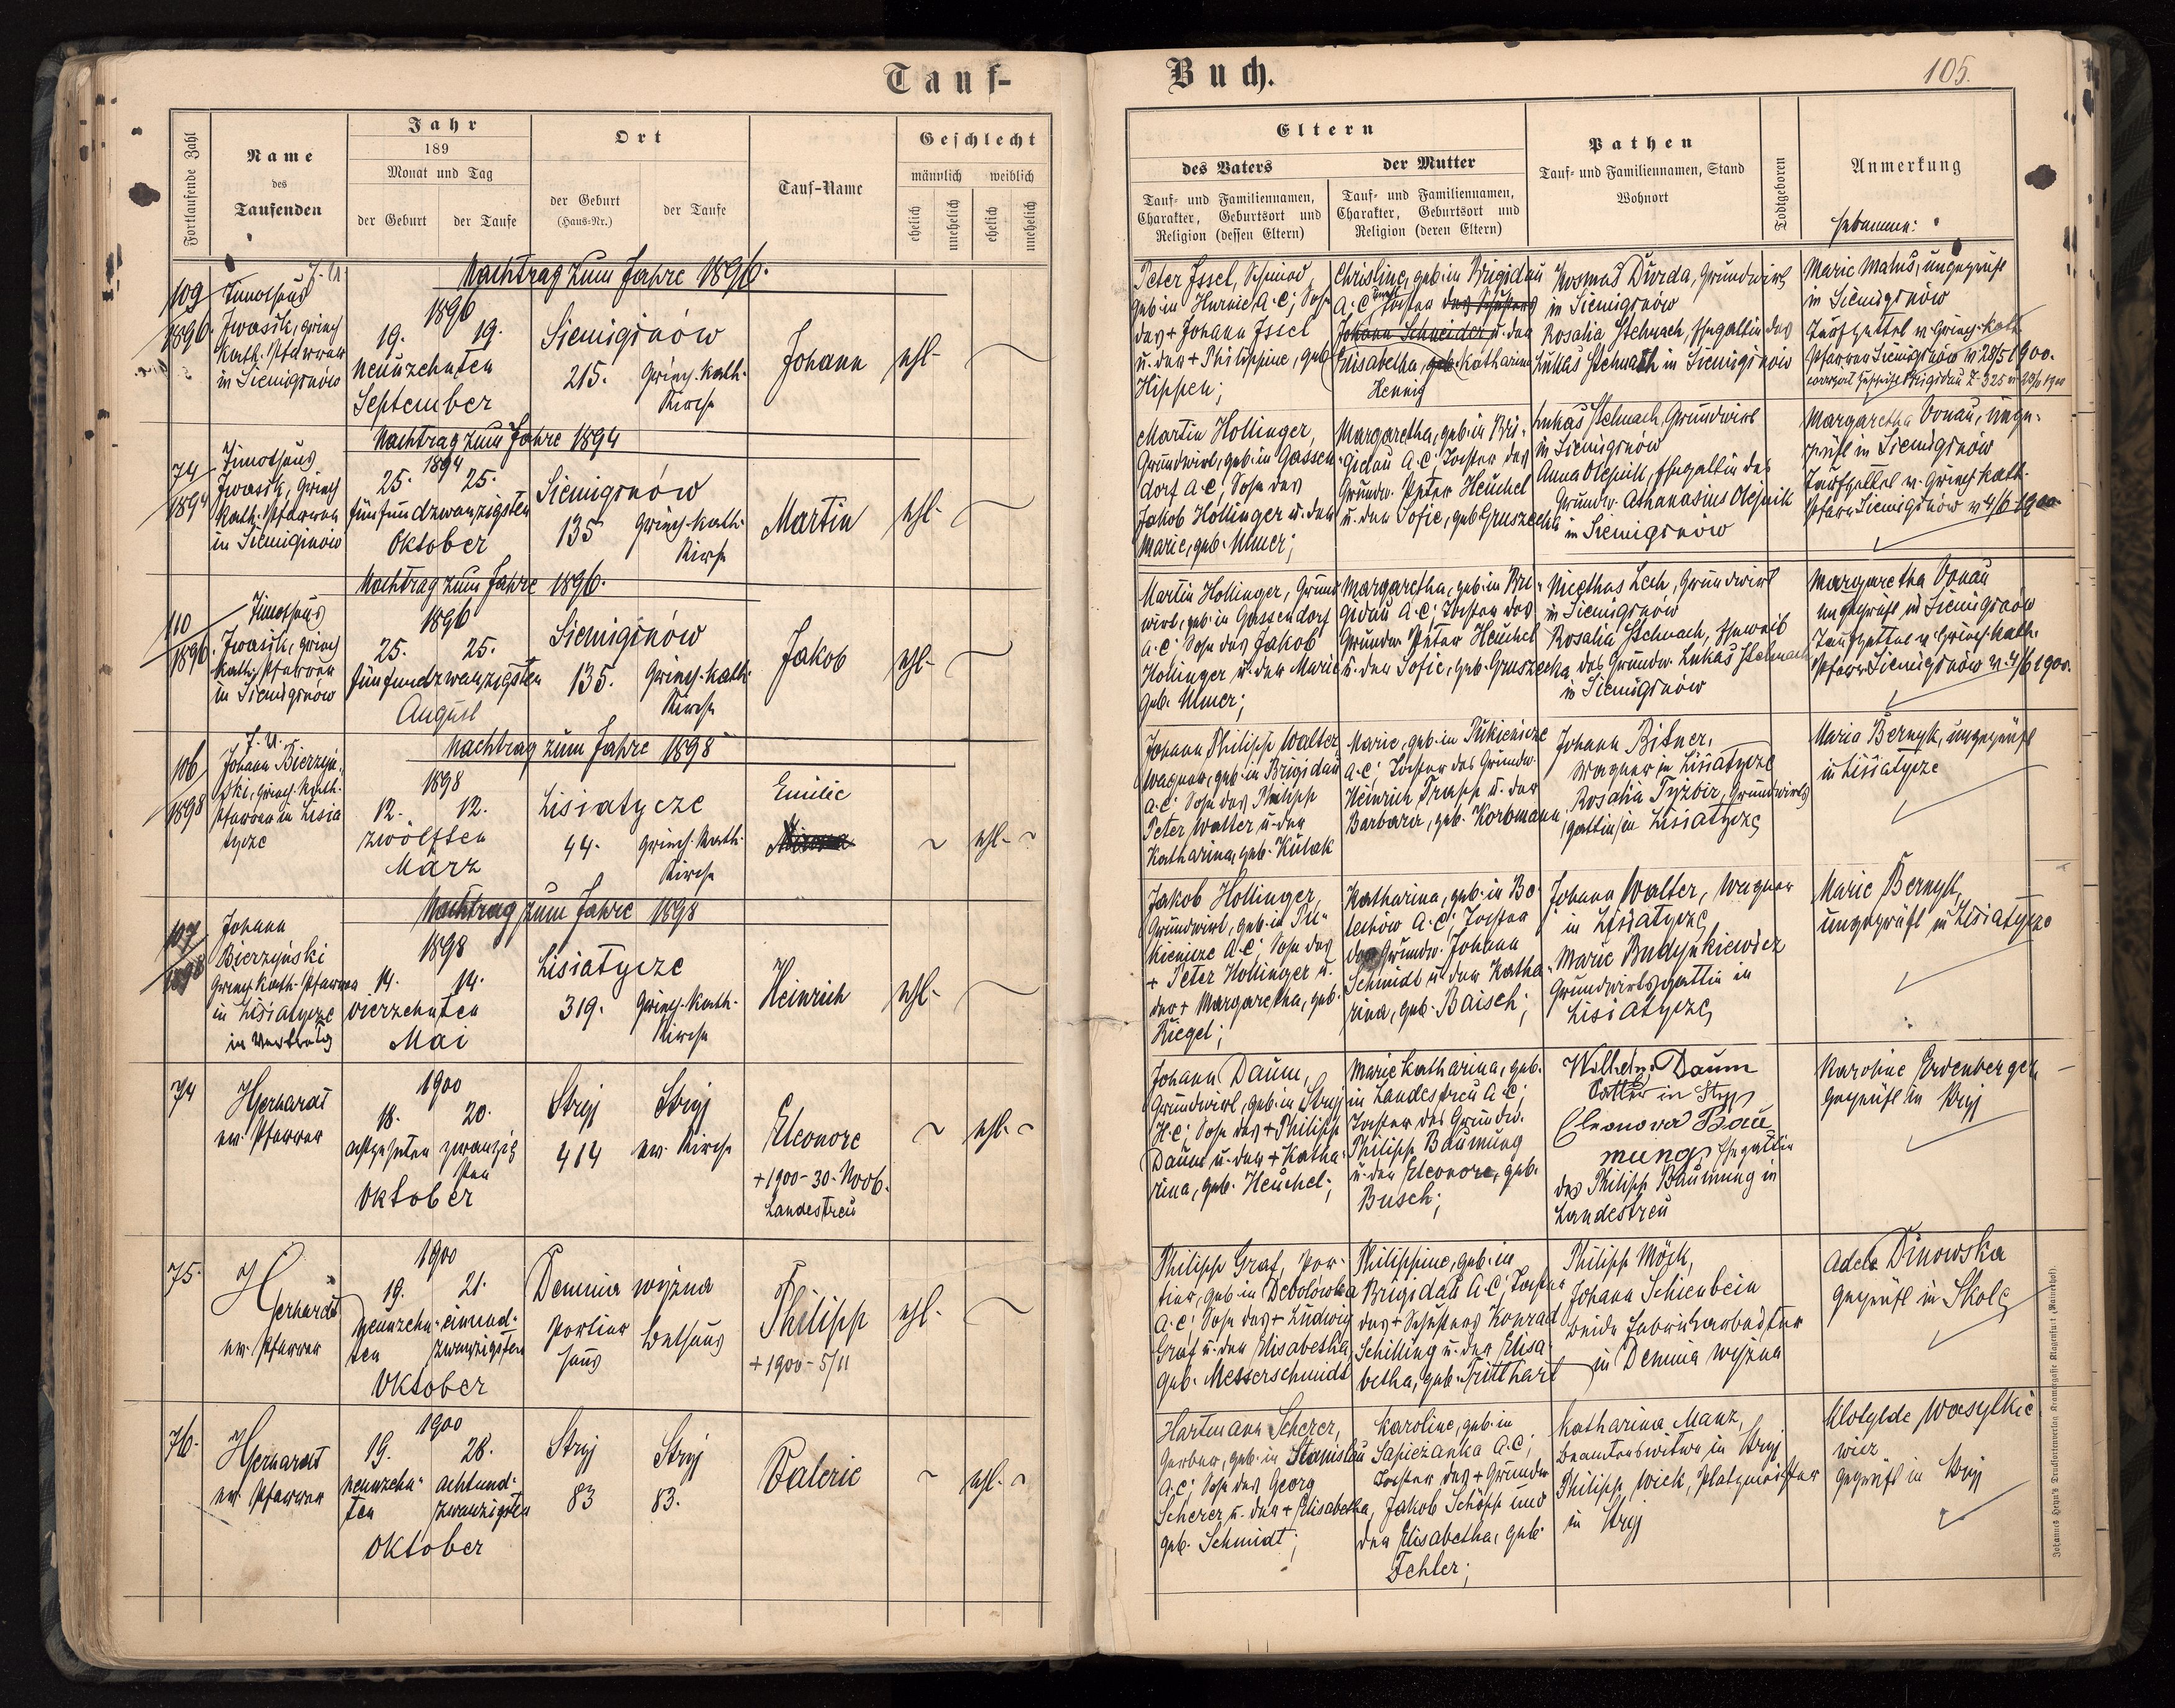 Tauf-
Buch.
105.
Fortlaufende Zahl
Name
des
Taufenden
Jahr
189
Monat und Tag
der Geburt
der Taufe
Ort
der Geburt
(Haus-Nr.)
der Taufe
Tauf-Name
Geschlecht
männlich
weiblich
ehelich
unehelich
ehelich
unehelich
Eltern
des Vaters
der Mutter
Tauf- und Familiennamen,
Charakter, Geburtsort und
Religion (dessen Eltern)
Tauf- und Familiennamen,
Charakter, Geburtsort und
Religion (deren Eltern)
Pathen
Tauf- und Familiennamen, Stand
Wohnort
Todtgeboren
Anmerkung
Hebamme:
Nachtrag zum Jahre 1896.
109
1896.
J. U.
Timotheus
Iwasik, griech
kath. Pfarrer
in Siemiginów
1896
19. 19.
Neunzehnten
September
Siemiginów
215. Griech. kath.
Kirche
Johann
ehl.
Peter Issel, Schmied,
geb. in Hurnie A.C; Sohn
des + Johann Issel
u. der + Philippine, geb.
Hippen;
Christine, geb. in Brigidau
A.C Tochter des Schusters
Johann Schneider u. der
Elisabetha, geb. Katharina
Hennig
Kosmas Durda, Grundwirt
in Siemiginów
Rosalia Stelmach, Ehegattin des
Lukas Stelmach in Siemiginów
Marie Matus, ungeprüft
in Siemiginów
Taufzettel v. Griech. Kath.
Pfarrer Siemiginów v. 28/5 1900.
Nachtrag zum Jahre 1894
74
1894
Timotheus
Iwasik, Griech
kath. Pfarrer
in Siemiginów
1894
25. 25.
fünfundzwanzigsten
Oktober
Siemiginów
135 Griech. kath.
Kirche
Martin
ehl.
Martin Hollinger,
Grundwirt, geb. in Gassen
dorf A.C, Sohn des
Jakob Hollinger u. der
Marie, geb. Umer;
Margaretha, geb. in Bri-
gidau A.C; Tochter des
Grundw. Peter Heuchel
u. der Sofie, geb. Gruszecka
Lukas Stelmach, Grundwirt
in Siemiginów
Anna Olejnik, Ehegattin des
Grundw. Athanasius Olejnik
in Siemiginów
Margaretha Donau, unge-
prüft in Siemiginów
Taufzettel v. Griech. kath.
Pfarr Siemiginów v. 4/6 1900
Nachtrag zum Jahre 1896.
110
1896.
Timotheus
Iwasik, griech
kath. Pfarrer
in Siemiginów
1896
25. 25.
fünfundzwanzigsten
August
Siemiginów
135. Griech. kath.
Kirche
Jakob
ehl.
Martin Hollinger, Grund
wirt, geb. in Gassendorf
A.C; Sohn des Jakob
Hollinger u. der Marie
geb. Umer;
Margaretha, geb. in Bri-
gidau A.C; Tochter des
Grundw. Peter Heuchel
u. der Sofie, geb. Gruszecka
Nicethas Lech, Grundwirt
in Siemiginów
Rosalia Stelmach, Eheweib
des Grundw. Lukas Stelmach
in Siemiginów
Margaretha Donau
ungeprüft in Siemiginów
Taufzettel v. Griech. kath.
Pfarr Siemiginów v. 4/6 1900.
Nachtrag zum Jahre 1898
106
1898
J. U.
Johann Bierzyń-
ski, griech. kath.
Pfarrer in Lisia
tycze
1898
12. 12.
zwölften
März
Lisiatycze
44. griech. kath.
Kirche
Emilie
ehl.
Johann Philipp Walter
Wagner, geb. in Brigidau
A.C: Sohn des Philipp
Peter Walter u. der
Katharina, geb. Kulak
Marie, geb. in Pukienicze
A.C; Tochter des Grundw.
Heinrich Trapp u. der
Barbara, geb. Korbmann,
Johann Bitner,
Wagner in Lisiatycze
Rosalia Tyzbir, Grundwirts
gattin in Lisiatycze
Maria Bernyk, ungeprüft
in Lisiatycze
Nachtrag zum Jahre 1898
107
1898
Johann
Bierzyński
Griech. kath. Pfarrer
in Lisiatycze
in Vertretg
1898
14. 14.
vierzehnten
Mai
Lisiatycze
319. Griech. kath.
Kirche
Heinrich
ehl.
Jakob Hollinger,
Grundwirt, geb. in Pu-
kienicze A.C; Sohn des
+ Peter Hollinger u.
der + Margaretha, geb.
Riegel;
Katharina, geb. in Bo-
lechów A.C; Tochter
des Grundw. Johann
Schmidt u. der Katha-
rina, geb. Baisch;
Johann Walter, Wagner
in Lisiatycze
Marie Budynkiewicz
Grundwirtsgattin in
Lisiatycze
Marie Bernyk,
ungeprüft in Lisiatycze
74
Gerhardt
ev. Pfarrer
1900
18. 20.
achtzehnten zwanzig
sten
Oktober
Stryj Stryj
414 ev. Kirche
Eleonore
+ 1900 - 30. Novb.
Landestreu
ehl.
Johann Daum,
Grundwirt, geb. in Stryj
H.C; Sohn des + Philipp
Daum u. der + Katha-
rina, geb. Heuchel;
Marie Katharina, geb.
in Landestreu A.C;
Tochter des Grundw.
Philipp Baumung
u. der Eleonore, geb.
Busch;
Wilhelm Daum
Sattler in Stryj
Eleonora Bau
mung, Ehegattin
des Philipp Baumung in
Landestreu
Karoline Erdenberger,
geprüft in Stryj
75.
Gerhardt
ev. Pfarrer
1900
19. 21.
Neunzehn- einund-
ten zwanzigsten
Oktober
Demnia wyżna
Portier Bethaus
haus
Philipp
+ 1900 - 5/11
ehl.
Philipp Graf, Por-
tier, geb. in Debolówka
A.C: Sohn des + Ludwig
Graf u. der Elisabetha
geb. Messerschmidt
Philippine, geb. in
Brigidau A.C; Tochter
des + Schusters Konrad
Schilling u. der Elisa-
betha, geb. Tritthart
Philipp Möck,
Johann Schienbein
beide Fabriksarbeiter
in Demnia wyżna
Adela Dinowska
geprüft in Skole
76.
Gerhardt
ev. Pfarrer
1900
19. 28.
neunzehn- achtund-
ten zwanzigsten
Oktober
Stryj Stryj
83 83.
Valerie
ehl.
Hartmann Scherer,
Gerber, geb. in Stanislau
A.C; Sohn des Georg
Scherer u. der + Elisabetha,
geb. Schmidt;
Karoline, geb. in
Sapiezanka A.C;
Tochter des + Grundw.
Jakob Schöpp und
der Elisabetha, geb.
Fehler;
Katharina Manz,
Beamtenswitwe in Stryj
Philipp Wiek, Platzmeister
in Stryj
Klotylde Wasylkie-
wicz
geprüft in Stryj
Johannes Heyn's Drucksortenverlag Kramergasse Klagenfurt (Mainerhof).